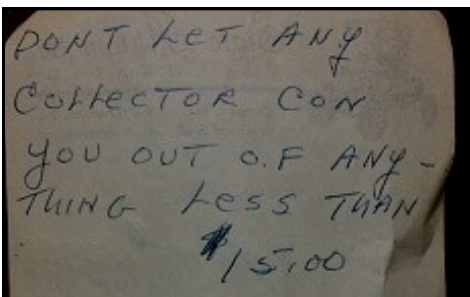 DONT LET ANY
COLLECTOR CON
YOU OUT O.F ANY-
THING LESS THAN
$15.00